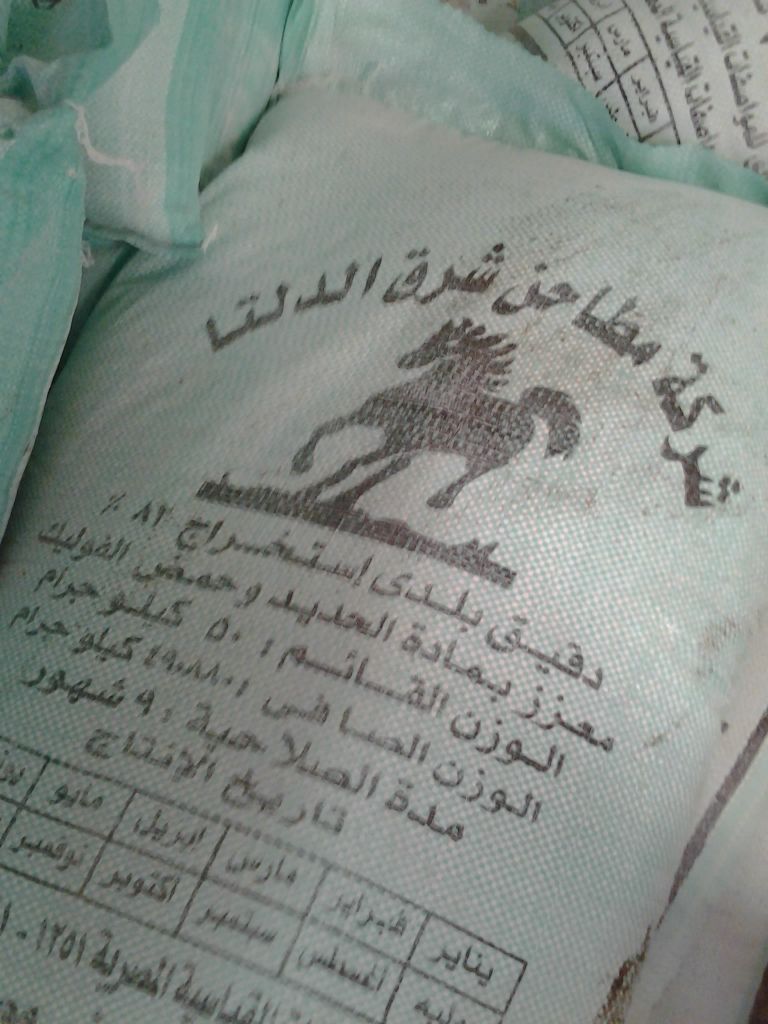 شركة مطاحن شرق الدلتا
دقيق بلدى إستخراج ٨٢ ٪
معزز بمادة الحديد وحمض الفوليك
الوزن القائم : ٥٠ كيلو جرام
الوزن الصافى : ٤٩٠٨٨٠ كيلو جرام
مدة الصلاحية : ٩ شهور
تاريخ الإنتاج
يناير فبراير مارس ابريل مايو
اغسطس سبتمبر اكتوبر نوفمبر
القياسية المصرية ١٢٥١ -
فبراير مارس
سبتمبر اكتوبر
للمواصفات القياسية